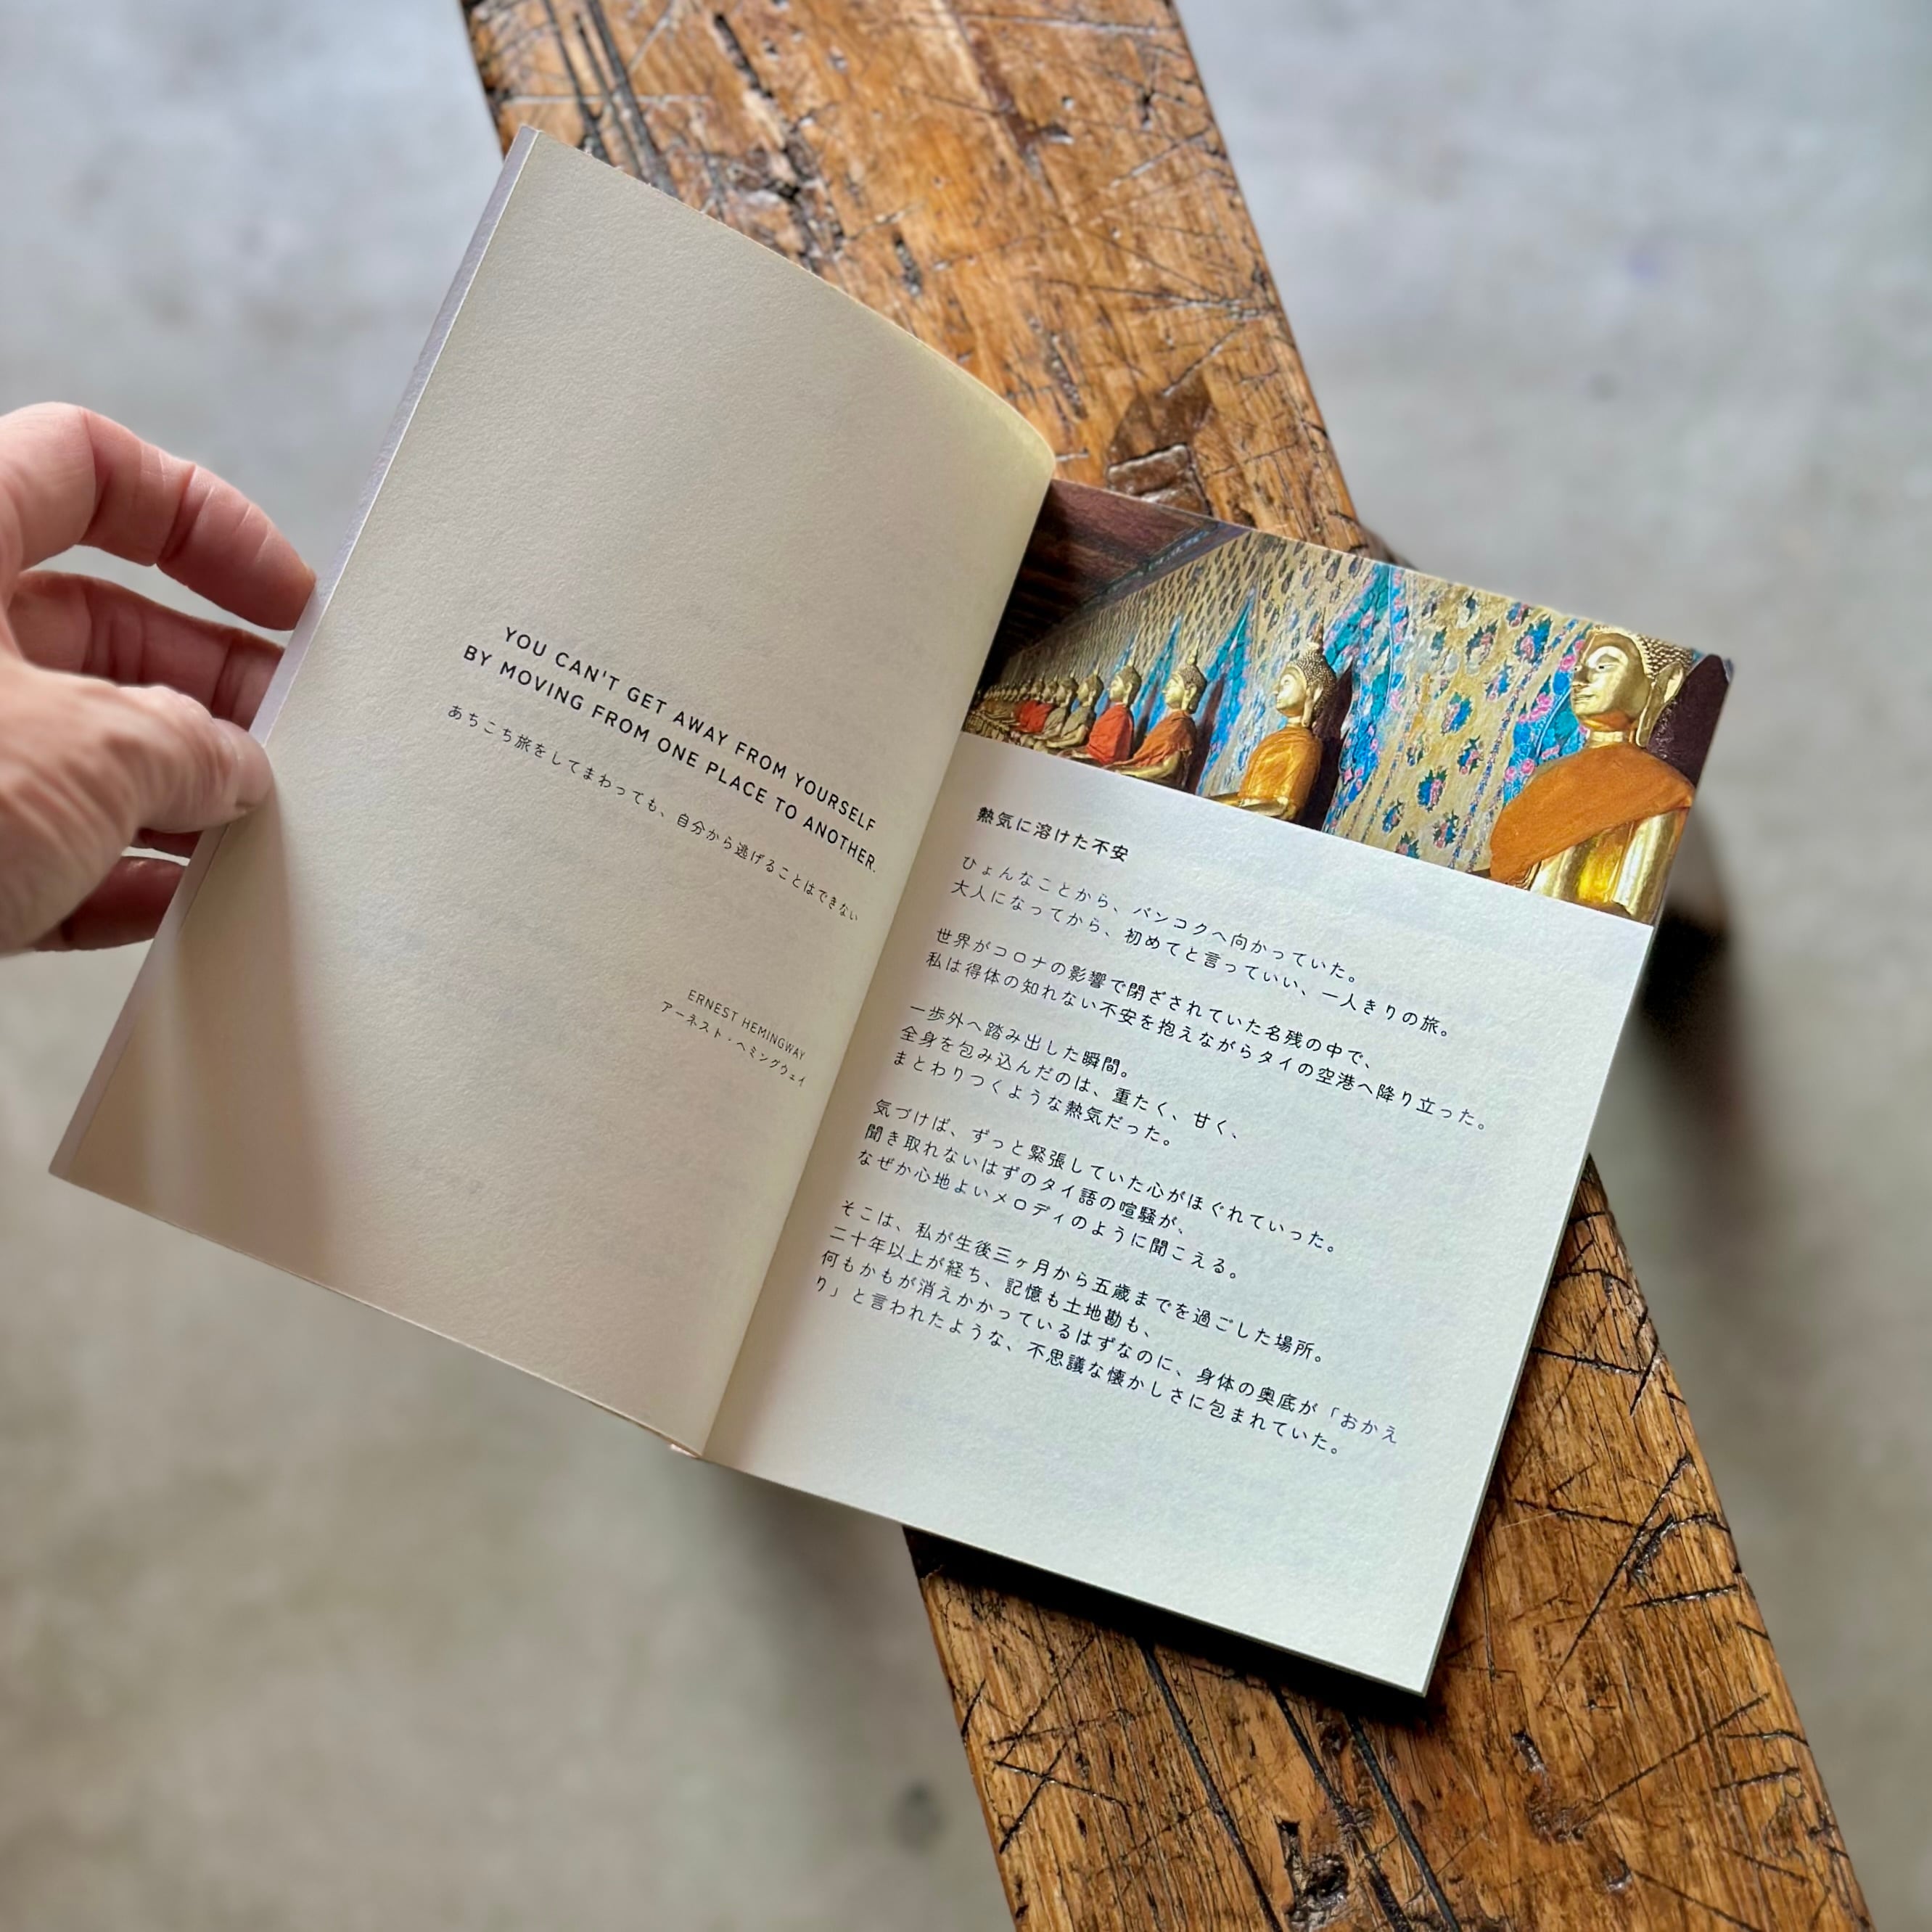 YOU CAN'T GET AWAY FROM YOURSELF
BY MOVING FROM ONE PLACE TO ANOTHER.
あちこち旅をしてまわっても、自分から逃げることはできない
ERNEST HEMINGWAY
アーネスト・ヘミングウェイ
熱気に溶けた不安
ひょんなことから、バンコクへ向かっていた。
大人になってから、初めてと言っていい、一人きりの旅。
世界がコロナの影響で閉ざされていた名残の中で、
私は得体の知れない不安を抱えながらタイの空港へ降り立った。
一歩外へ踏み出した瞬間。
全身を包み込んだのは、重たく、甘く、
まとわりつくような熱気だった。
気づけば、ずっと緊張していた心がほぐれていった。
聞き取れないはずのタイ語の喧騒が、
なぜか心地よいメロディのように聞こえる。
そこは、私が生後三ヶ月から五歳までを過ごした場所。
二十年以上が経ち、記憶も土地勘も、
何もかもが消えかかっているはずなのに、身体の奥底が「おかえ
り」と言われたような、不思議な懐かしさに包まれていた。